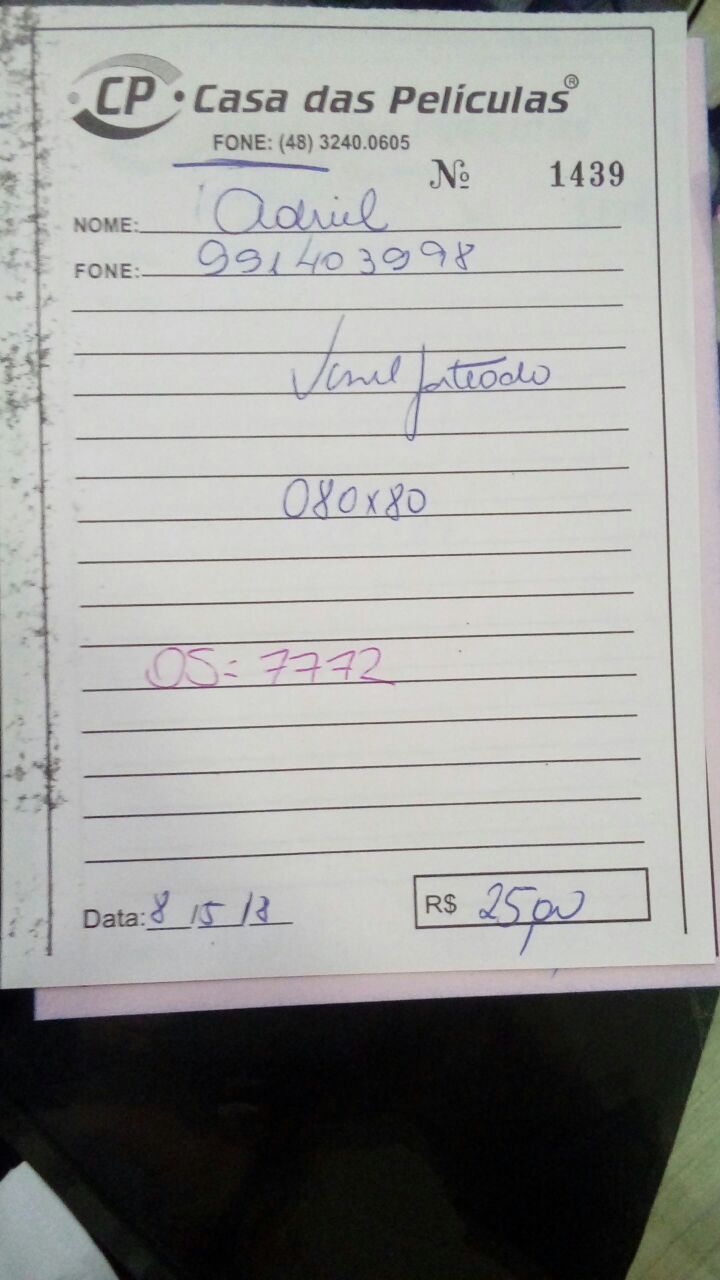 CP Casa das Películas®
FONE: (48) 3240.0605
Nº 1439
NOME: Adriel
FONE: 991403998
Vinil jateado
080x80
OS= 7772
Data: 8/5/18
R$ 25,00